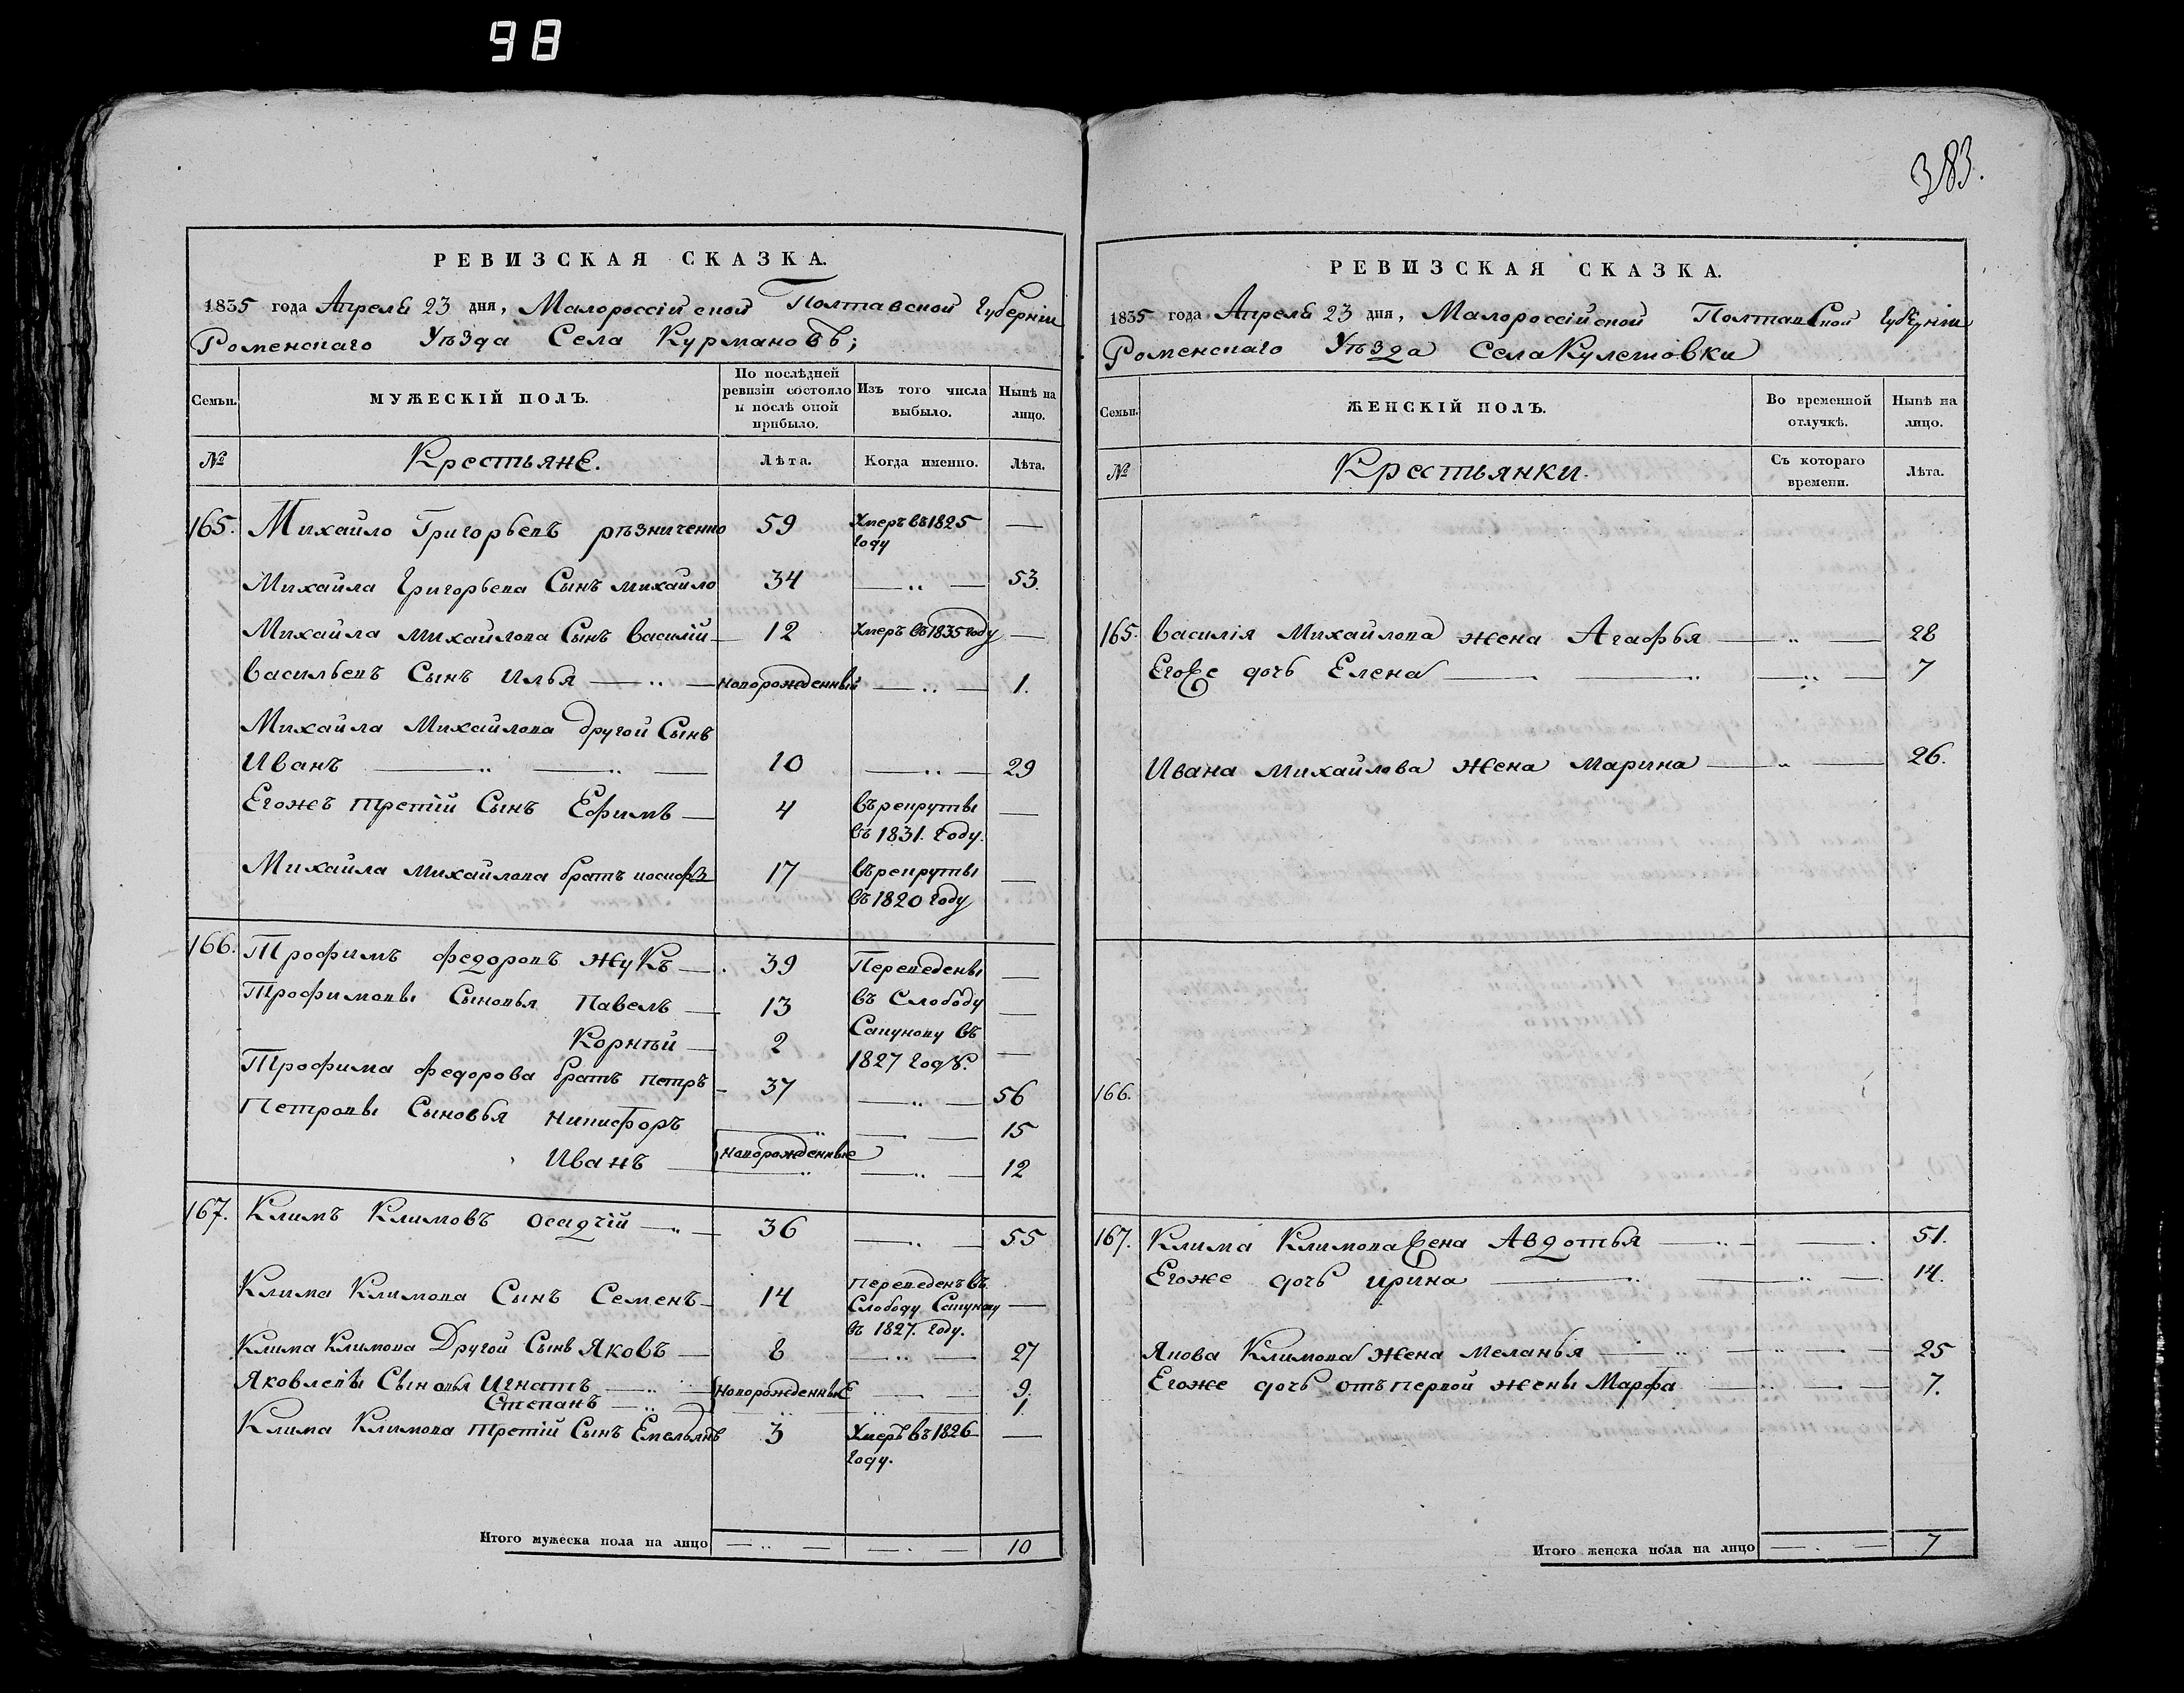 98
383.
РЕВИЗСКАЯ СКАЗКА.
1835 года Апреля 23 дня, Малороссійской Полтавской Губерніи
Роменскаго Уѣзда Села Курмановъ;
Семьи. МУЖЕСКІЙ ПОЛЪ. По послѣдней ревизіи состояло и послѣ оной прибыло. Изъ того числа выбыло. Нынѣ на лицо.
№ Крестьяне. Лѣта. Когда именно. Лѣта.
165. Михайло Григорьевъ рѣзниченко 59 Умеръ въ 1825 году —
Михайла Григорьева Сынъ михайло 34 — 53.
Михайла михайлова Сынъ василій 12 Умеръ въ 1835 году —
васильевъ Сынъ Илья новорожденный — 1.
Михайла Михайлова другой Сынъ
Иванъ 10 — 29
Егожъ третій Сынъ Ефимъ 4 въ рекруты въ 1831. году. —
Михайла михайлова братъ иосифъ 17 въ рекруты въ 1820 году —
166. Трофимъ федоровъ жукъ 39 Переведены —
Трофимовы Сыновья Павелъ 13 въ Слободу —
Корнѣй 2 Сапунову въ —
1827 году.
Трофима федорова братъ петръ 37 — 56
Петровы Сыновья никифоръ 15
Иванъ новорожденные 12
167. Климъ Климовъ осадчій 36 — 55
Клима Климова Сынъ Семенъ 14 переведенъ въ Слободу Сапунову въ 1827. году. —
Клима Климова Другой Сынъ Яковъ 8 — 27
Яковлевы Сыновья Игнатъ новорожденные 9.
Степанъ 1.
Клима Климова третій Сынъ Емельянъ 3 Умеръ въ 1826 году. —
Итого мужеска пола на лицо 10
РЕВИЗСКАЯ СКАЗКА.
1835 года Апреля 23 дня, Малороссійской Полтавской Губерніи
Роменскаго Уѣзда Села Кулешовки
Семьи. ЖЕНСКІЙ ПОЛЪ. Во временной отлучкѣ. Нынѣ на лицо.
№ Крестьянки. Съ котораго времени. Лѣта.
165. василія Михайлова жена Агафья 28
Егоже дочь Елена 7
Ивана михайлова жена марина 26.
166.
167. Клима Климова жена Авдотья 51.
Егоже дочь ирина 14.
Якова Климова жена меланья 25
Егоже дочь отъ первой жены Марфа 7.
Итого женска пола на лицо 7